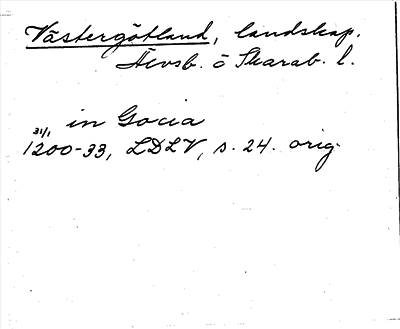 Västergötland, landskap.
Älvsb. o Skarab. l.
in Gocia
31/1
1200-33, LDLV, s. 24. orig.